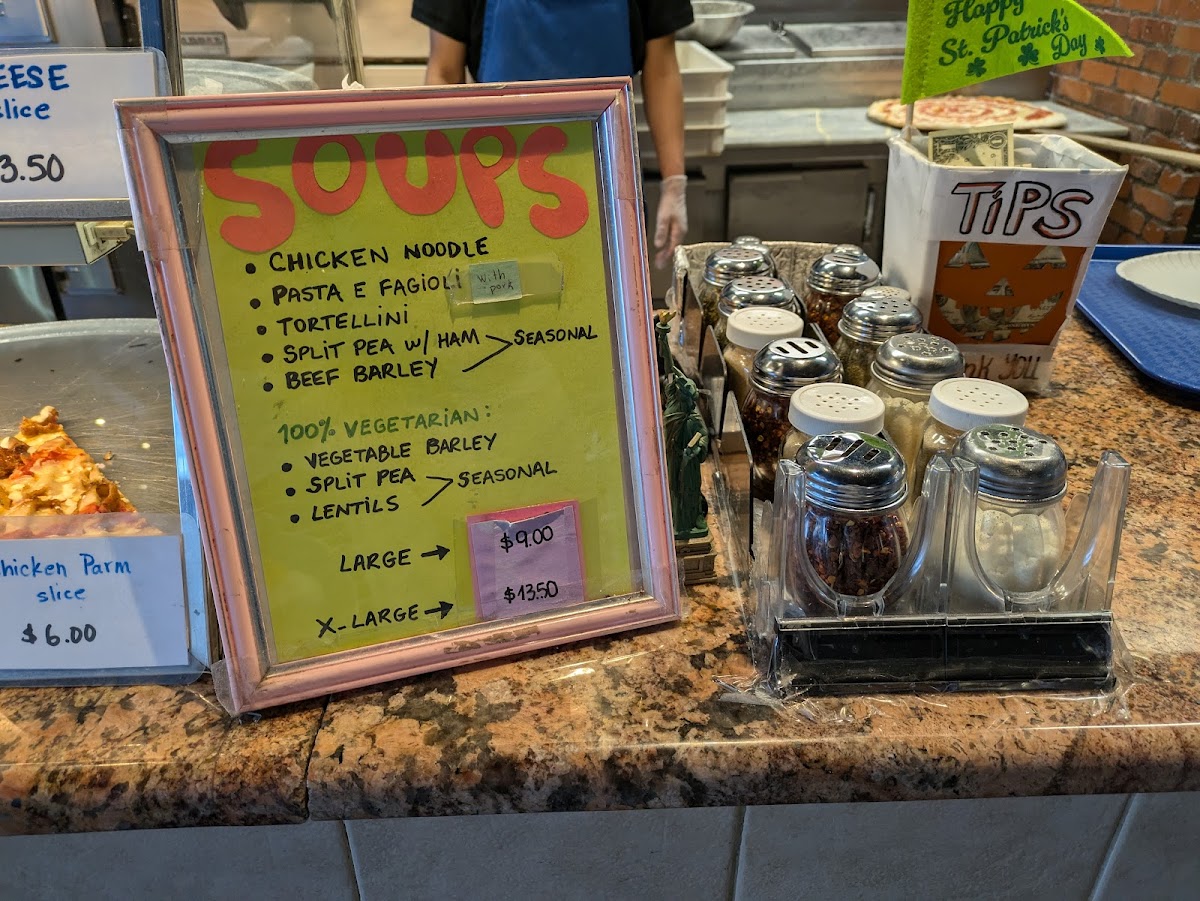 EESE
slice
3.50
Chicken Parm
slice
$6.00
SOUPS
• CHICKEN NOODLE
• PASTA E FAGIOLI with pork
• TORTELLINI
• SPLIT PEA w/ HAM
• BEEF BARLEY
SEASONAL
100% VEGETARIAN:
• VEGETABLE BARLEY
• SPLIT PEA
• LENTILS
SEASONAL
LARGE → $9.00
X-LARGE → $13.50
Happy
St. Patrick's
Day
TiPS
nk YOU